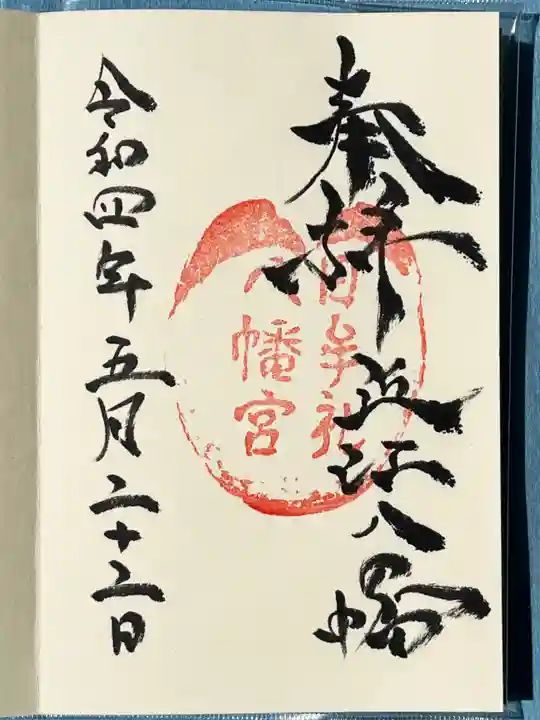 奉拝 近江八幡
日牟礼
八幡宮
令和四年五月二十二日